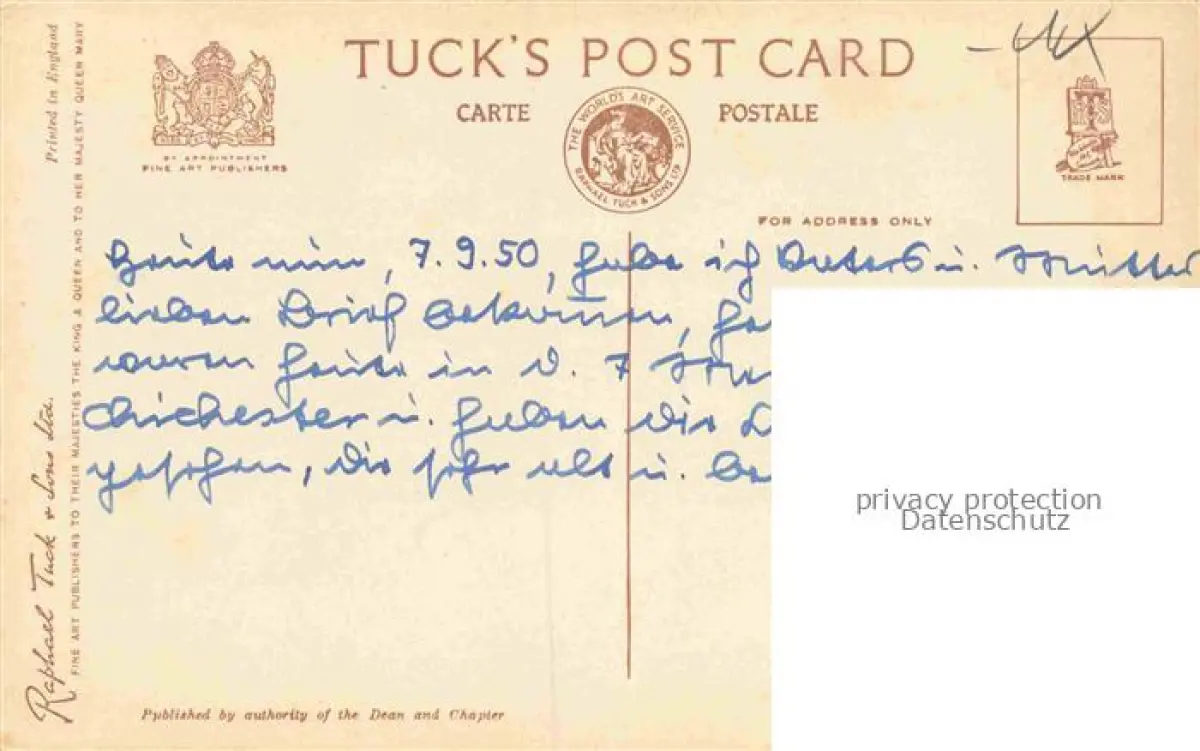 Printed in England
TUCK'S POST CARD
CARTE POSTALE
THE WORLD'S ART SERVICE
RAPHAEL TUCK & SONS LTD
BY APPOINTMENT
FINE ART PUBLISHERS
TRADE MARK
FOR ADDRESS ONLY
Heute nun, 7.9.50, habe ich Vaters u. Mutter
lieben Brief bekommen,
waren heute in d. 7
Chichester u. haben die
gesehen, die sehr alt u.
privacy protection
Datenschutz
Raphael Tuck & Sons Ltd.
FINE ART PUBLISHERS TO THEIR MAJESTIES THE KING & QUEEN AND TO HER MAJESTY QUEEN MARY
Published by authority of the Dean and Chapter